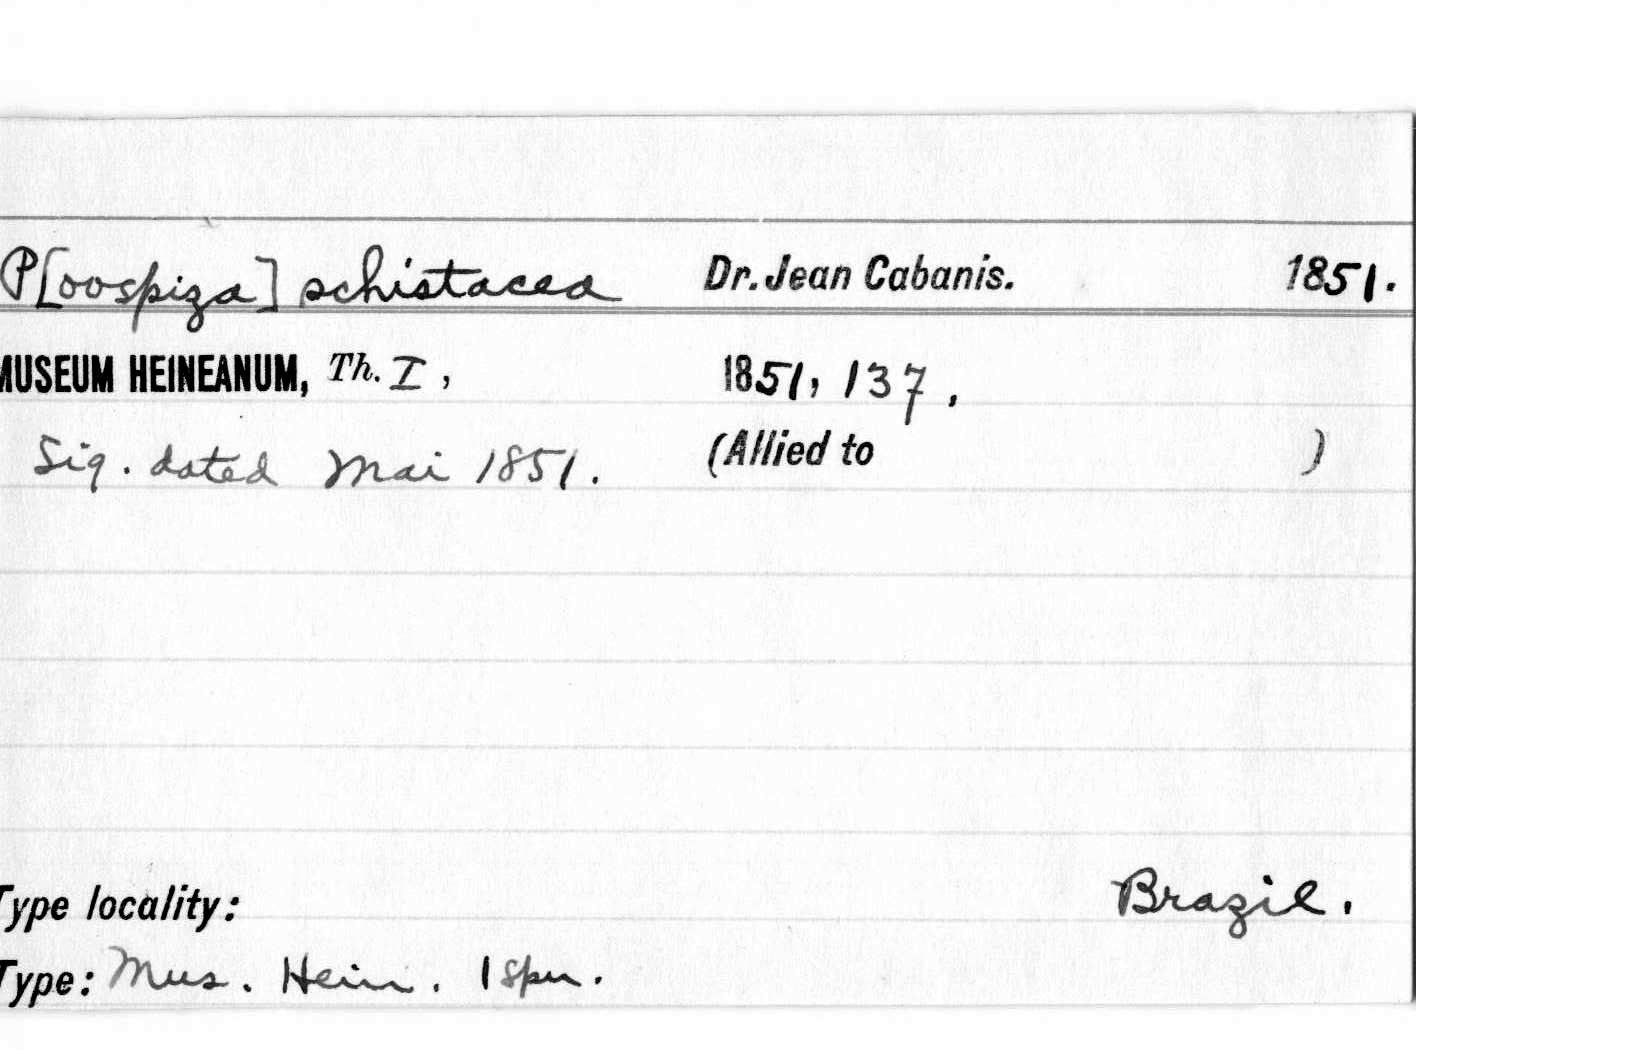 P[oospiza] schistacea Dr. Jean Cabanis. 1851.
MUSEUM HEINEANUM, Th. I, 1851, 137.
Sig. dated Mai 1851. (Allied to )
Type locality: Brazil.
Type: Mus. Hein. 1 spn.